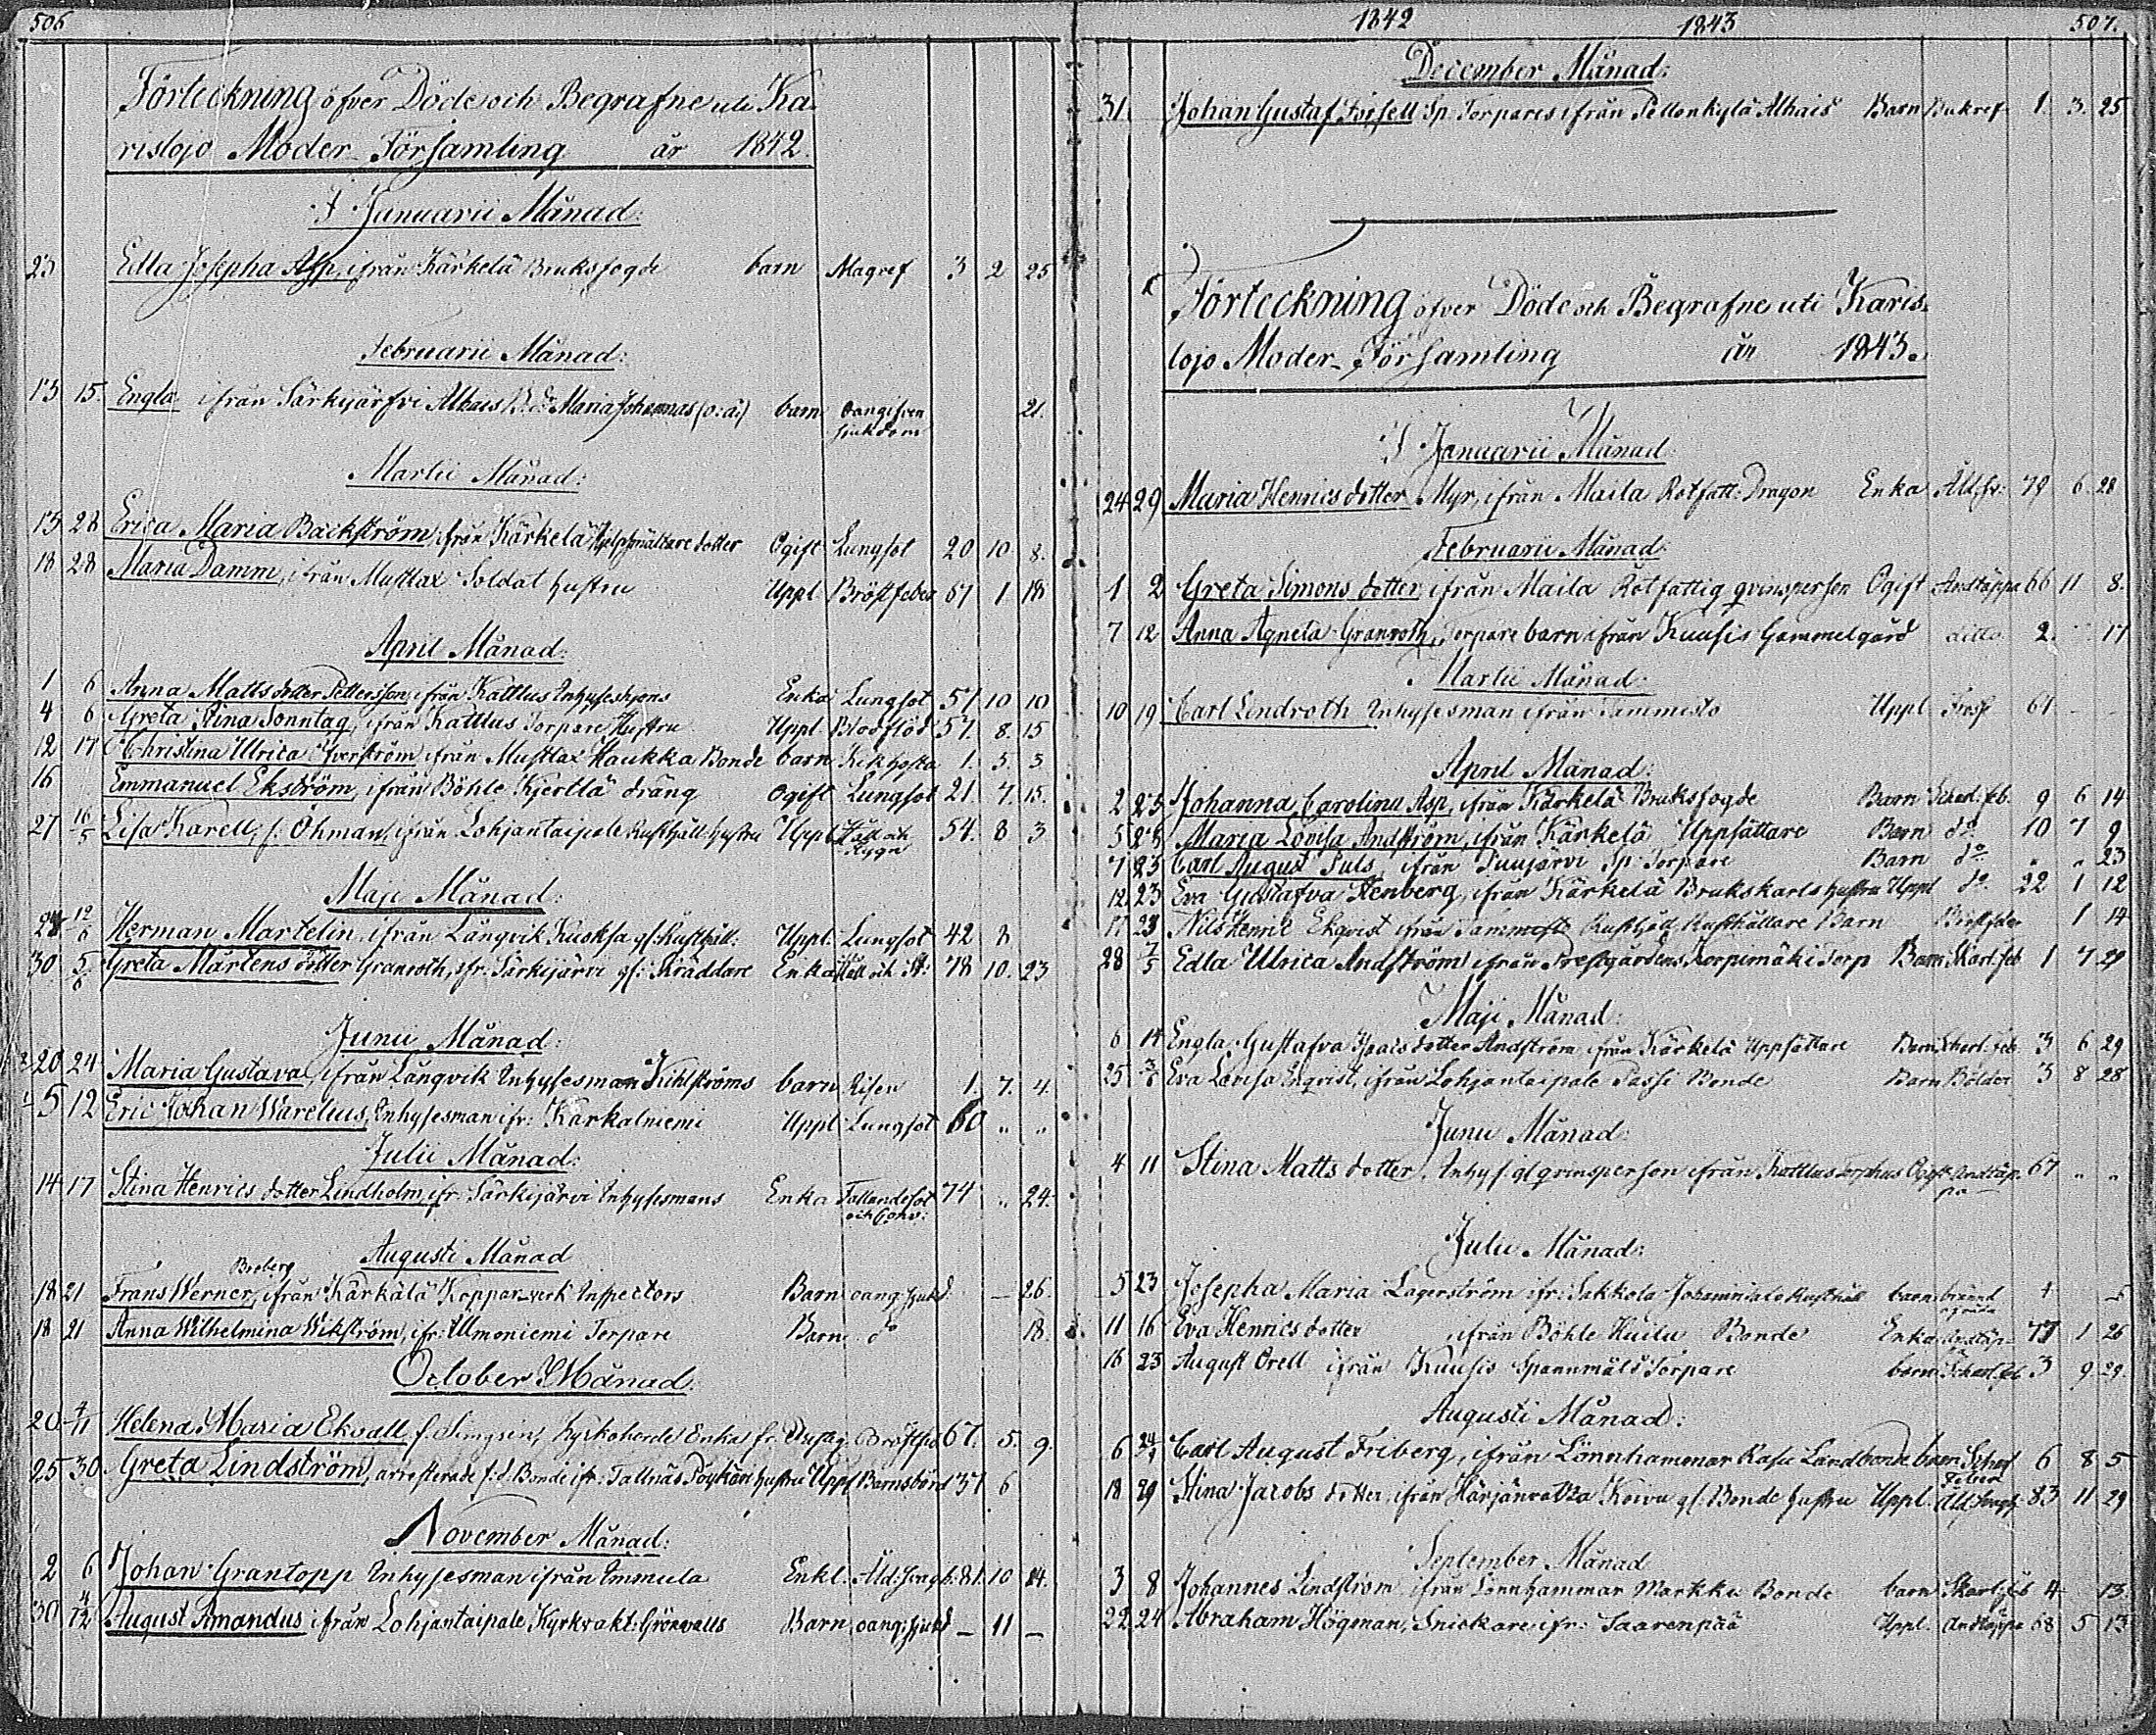 506
Förteckning öfver Döde och Begrafne uti Ka-
rislojo Moder-Församling år 1842.
I Januarii Månad:
23 Edla Josepha Asp, ifrån Kärkelä Bruksfogde barn Magref 3 2 25
Februarii Månad:
13 15. Engla ifrån Särkijärfvi Alhais Maria Johannas (o: ä:) barn oangifven 21.
sjukdom
Martii Månad:
13 28 Erica Maria Backström, ifrån Kärkelä Hjelpsmältare dotter Ogift Lungsot 20 10 8.
18 28 Maria Damm, ifrån Mustlax Soldat hustru Uppl Bröstfeber 61 1 18
April Månad:
1 6 Anna Matts dotter Pettersson, ifrån Kattlus Inhyseshjons Enka Lungsot 51 10 10
4 6 Greta Stina Sonntag, ifrån Kattlus Torpare Hustru Uppl Blodflöd 57. 8. 15
12 17 Christina Ulrica Öfverström ifrån Mustlax Haukka Bonde barn Kikhosta 1. 5. 3.
16 Emmanuel Ekström, ifrån Böhle Kjerttä dräng Ogift Lungsot 21. 7. 15.
27 16/5 Lisa Karell, f. Öhman, ifrån Lohjantaipale Rusthåll hustru Uppl Håll och 54. 8 3
Rygv
Maji Månad:
24 12/6 Herman Martelin ifrån Långvik Kuoksa gl: Rusthåll: Uppl. Lungsot 42 8
30 5/6 Greta Mårtens dotter Granroth, ifr: Särkijärvi gl: Skräddare Enka Håll och St: 78 10. 23
Junii Månad:
20 24 Maria Gustava, ifrån Långvik Inhysesman Kihlströms barn Risen 1. 7. 4.
5 12 Eric Johan Warelius, Inhysesman ifr: Karkalniemi Uppl Lungsot 60 " "
Julii Månad:
14 17 Stina Henrics dotter Lindholm, ifr: Särkijärvi Inhysesmans Enka Fallandesot 74 " 24.
och Conv:
Augusti Månad
Broberg
18 21 Frans Werner, ifrån Kärkälä Koppar-verk Inspectors Barn oang: sjukd. — 26.
18 21 Anna Wilhelmina Wikström, ifr: Ulmoniemi Torpare Barn do 18.
October Månad:
20 4/11 Helena Maria Ekvall, f. Simzein, Kyrkoherde Enka fr. Bröstfeb 67. 5. 9.
25 30 Greta Lindström, arresterade f.d. Bonde ifr: Tallnäs Pöykäri hustru Uppl Barnsbörd 37 6
November Månad:
2 6 Johan Grantopp Inhysesman ifrån Immula Enkl. Åld: svagh. 81. 10 14.
30 4/12 August Amandus ifrån Lohjantaipale Kyrkvakt: Grönvalls Barn oang: sjukd — 11 —
1842 1843 507.
December Månad:
31. Johan Gustaf Forsell Sp. Torpares ifrån Pellonkylä Alhais Barn Bukref 1. 3. 25
Förteckning öfver Döde och Begrafne uti Karis-
lojo Moder-Församling år 1843.
I Januarii Månad
24 29 Maria Henrics dotter Myr, ifrån Maila Rotfatt: Dragon Enka Åld: sv: 79 6 28
Februarii Månad:
1 2 Greta Simons dotter, ifrån Maila Rotfattig qvinsperson Ogift Andtäppa 66 11 8.
7 12 Anna Agneta Granroth, Torpare barn ifrån Kuusis Gammelgård ditto 2. " 17
Martii Månad:
10 19 Carl Lindroth Inhysesman ifrån Tammisto Uppl 61 - -
April Månad:
2 23 Johanna Carolina Asp, ifrån Kärkelä Bruksfogde Barn Scharl. feb. 9 6 14
5 23 Maria Lovisa Andström, ifrån Kärkelä Uppsättare Barn do 10 7 9
7 23 Carl August Suls, ifrån Puujärvi Sp: Torpare Barn do " " 23
12 23 Eva Gustafva Stenberg, ifrån Kärkelä Brukskarls hustru Uppl do. 22 1 12
17 23 Nils Henric Ekqvist ifrån Tammisto Rusthåll Rusthållare Barn Bröstfeber 1 14
28 7/5 Edla Ulrica Andström ifrån Prestgårdens Korpimäki Torp Barn Skarl. feb 1 7 29
Maji Månad:
6 14 Engla Gustafva Isaacs dotter Andström ifrån Kärkelä Uppsättare Barn Scharl. feb 3 6 29
25 3/6 Eva Lovisa Enqvist, ifrån Lohjantaipale Passi Bonde Barn Bölder 3 8 28
Junii Månad:
4 11 Stina Matts dotter, Inhys. gl qvinsperson ifrån Kattlus Torphus Ogift Andtäp- 67 " "
pa
Julii Månad:
5 23 Josepha Maria Lagerström ifr: Sakkola Johannisdals Rusthåll barn bränd 4 - 5
11 16 Eva Henrics dotter ifrån Böhle Huilu Bonde Enka Andtäp. 77 1 26
16 23 August Orell ifrån Kuusis Spannmåls Torpare barn Scharl. feb 3 9 29.
Augusti Månad:
6 24/9 Carl August Friberg, ifrån Lönnhammar Rasu Landbonde barn Scharl 6 8 5
Feber
18 29 Stina Jacobs dotter, ifrån Härjänvatsa Koivu gl. Bonde hustru Uppl. Åld. svagh. 83 11 29
September Månad
3 8 Johannes Lindström ifrån Lönnhammar Markku Bonde barn Skarl. feb 4 13.
22 24 Abraham Högman, Snickare ifr: Saarenpää Uppl. Andtäppa 68 5 13